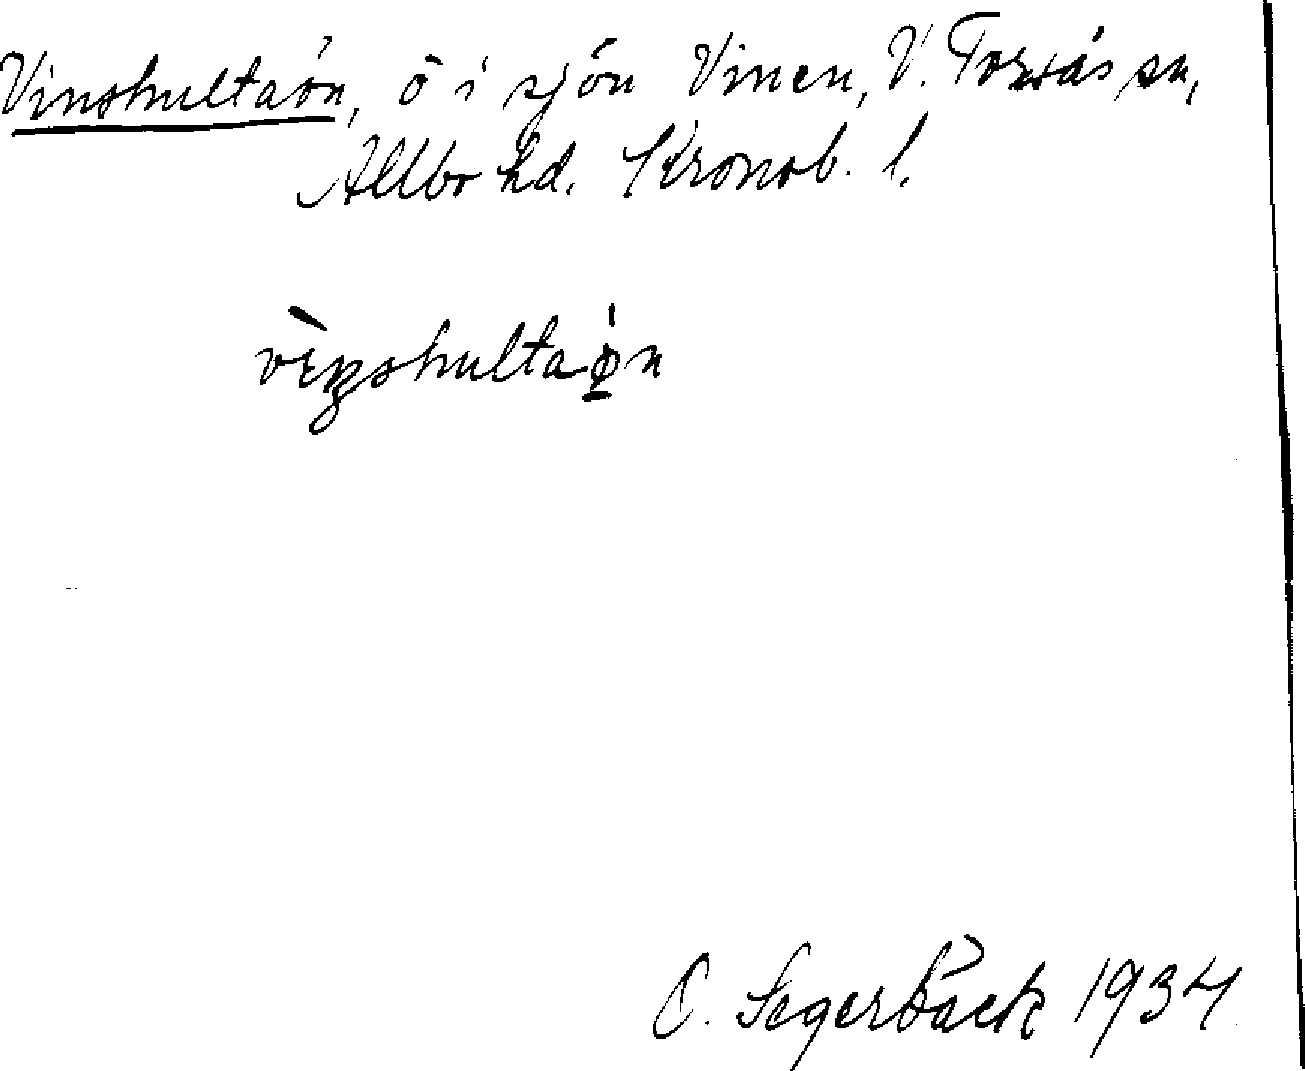 Vinshultaön, ö i sjön Vinen, V. Torsås sn,
Allbo hd. Kronob. l.
vìŋshultaøn
C. Segerbäck 1934